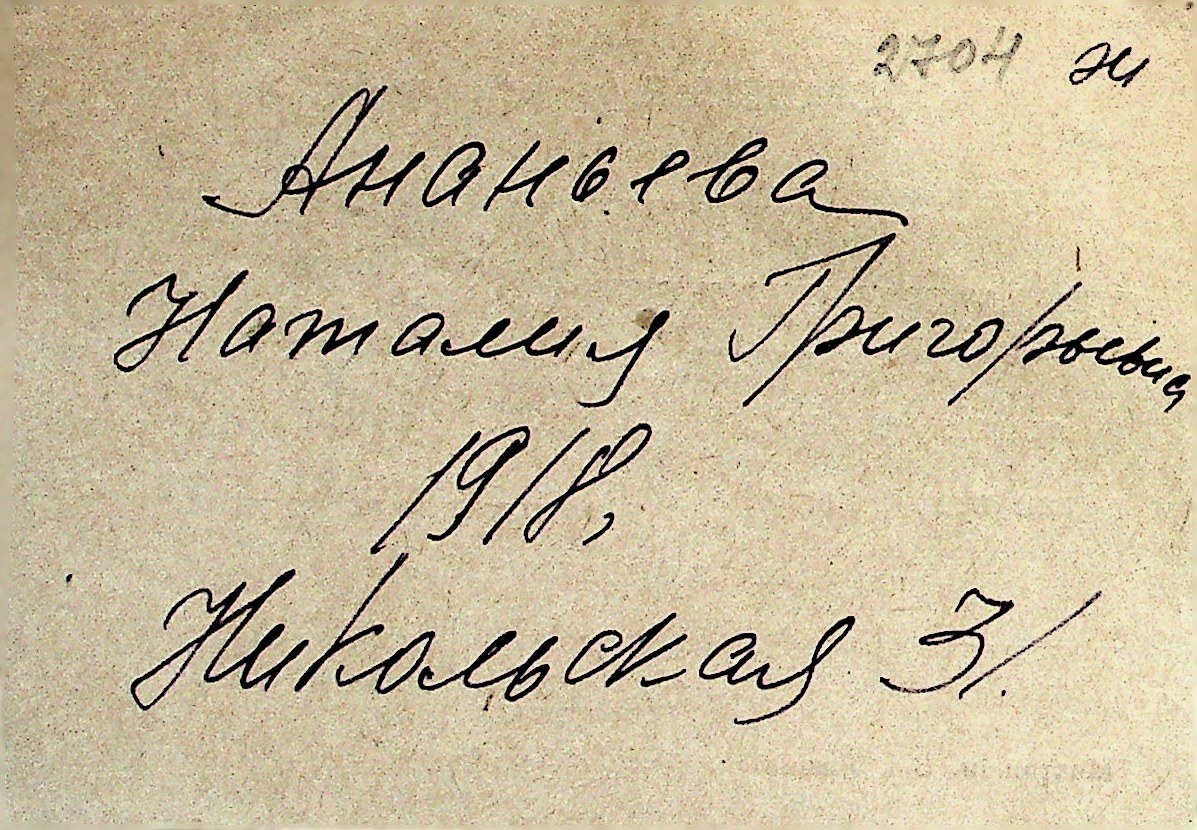 2704 ж
Ананьева
Наталия Григорьевна
1918,
Никольская 31.